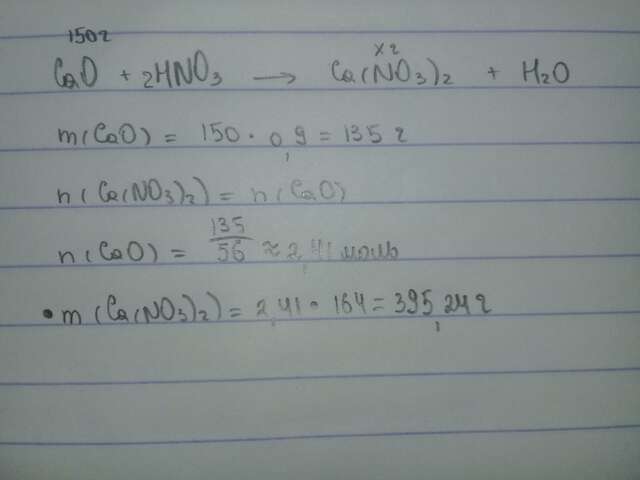 150г
x г
CaO + 2HNO3 → Ca(NO3)2 + H2O
m(CaO) = 150 · 0,9 = 135 г
n(Ca(NO3)2) = n(CaO)
n(CaO) = 135/56 ≈ 2,41 моль
• m(Ca(NO3)2) = 2,41 · 164 = 395,24 г